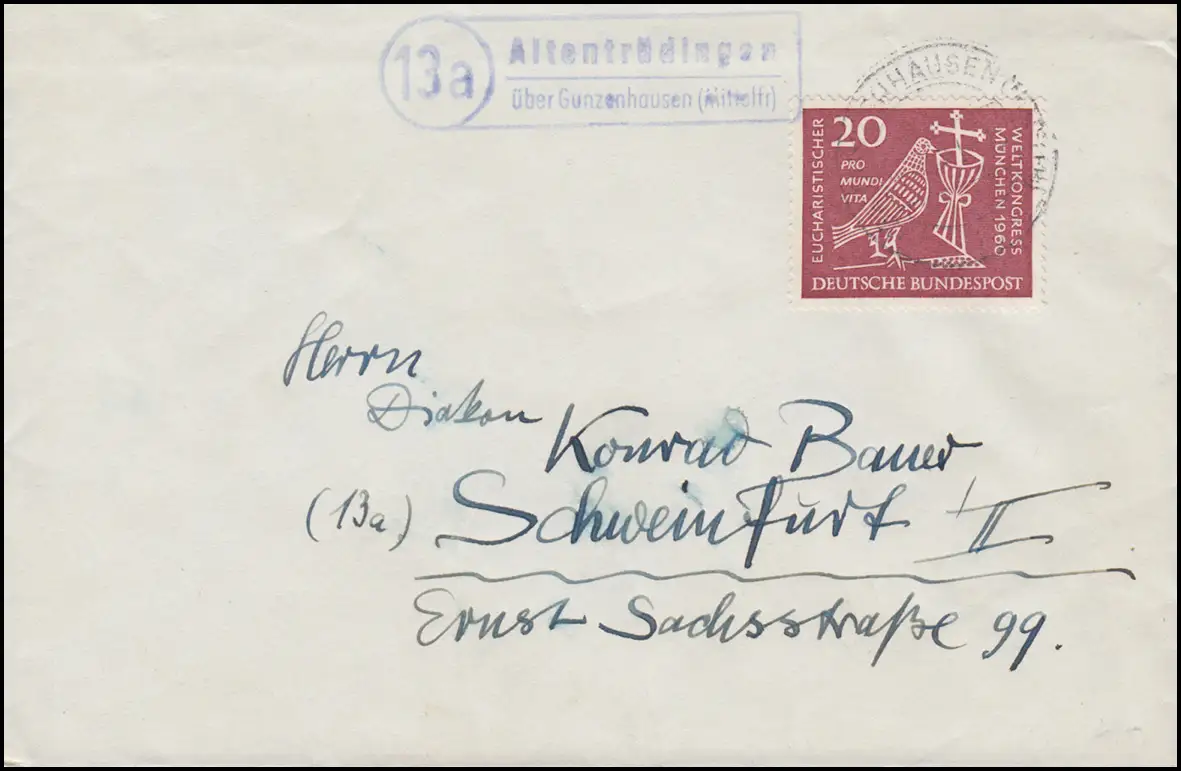 13a
Altentrüdingen
über Gunzenhausen (Mittelfr)
20
PRO
MUNDI
VITA
EUCHARISTISCHER
WELTKONGRESS
MÜNCHEN 1960
DEUTSCHE BUNDESPOST
Herrn
Diakon
Konrad Bauer
(13a) Schweinfurt II
Ernst Sachsstraße 99.